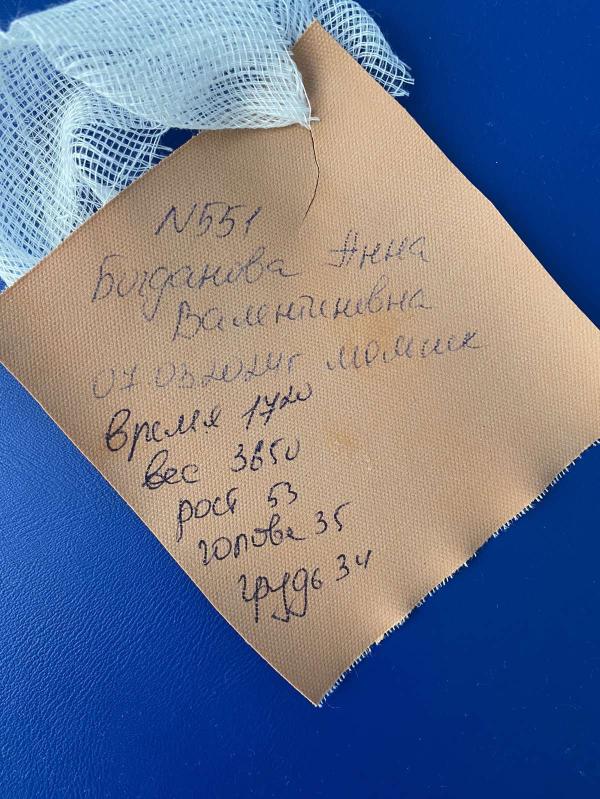 N551
Богданова Анна
Валентиновна
07.03.2024г мальчик
время 1720
вес 3650
рост 53
голова 35
грудь 34